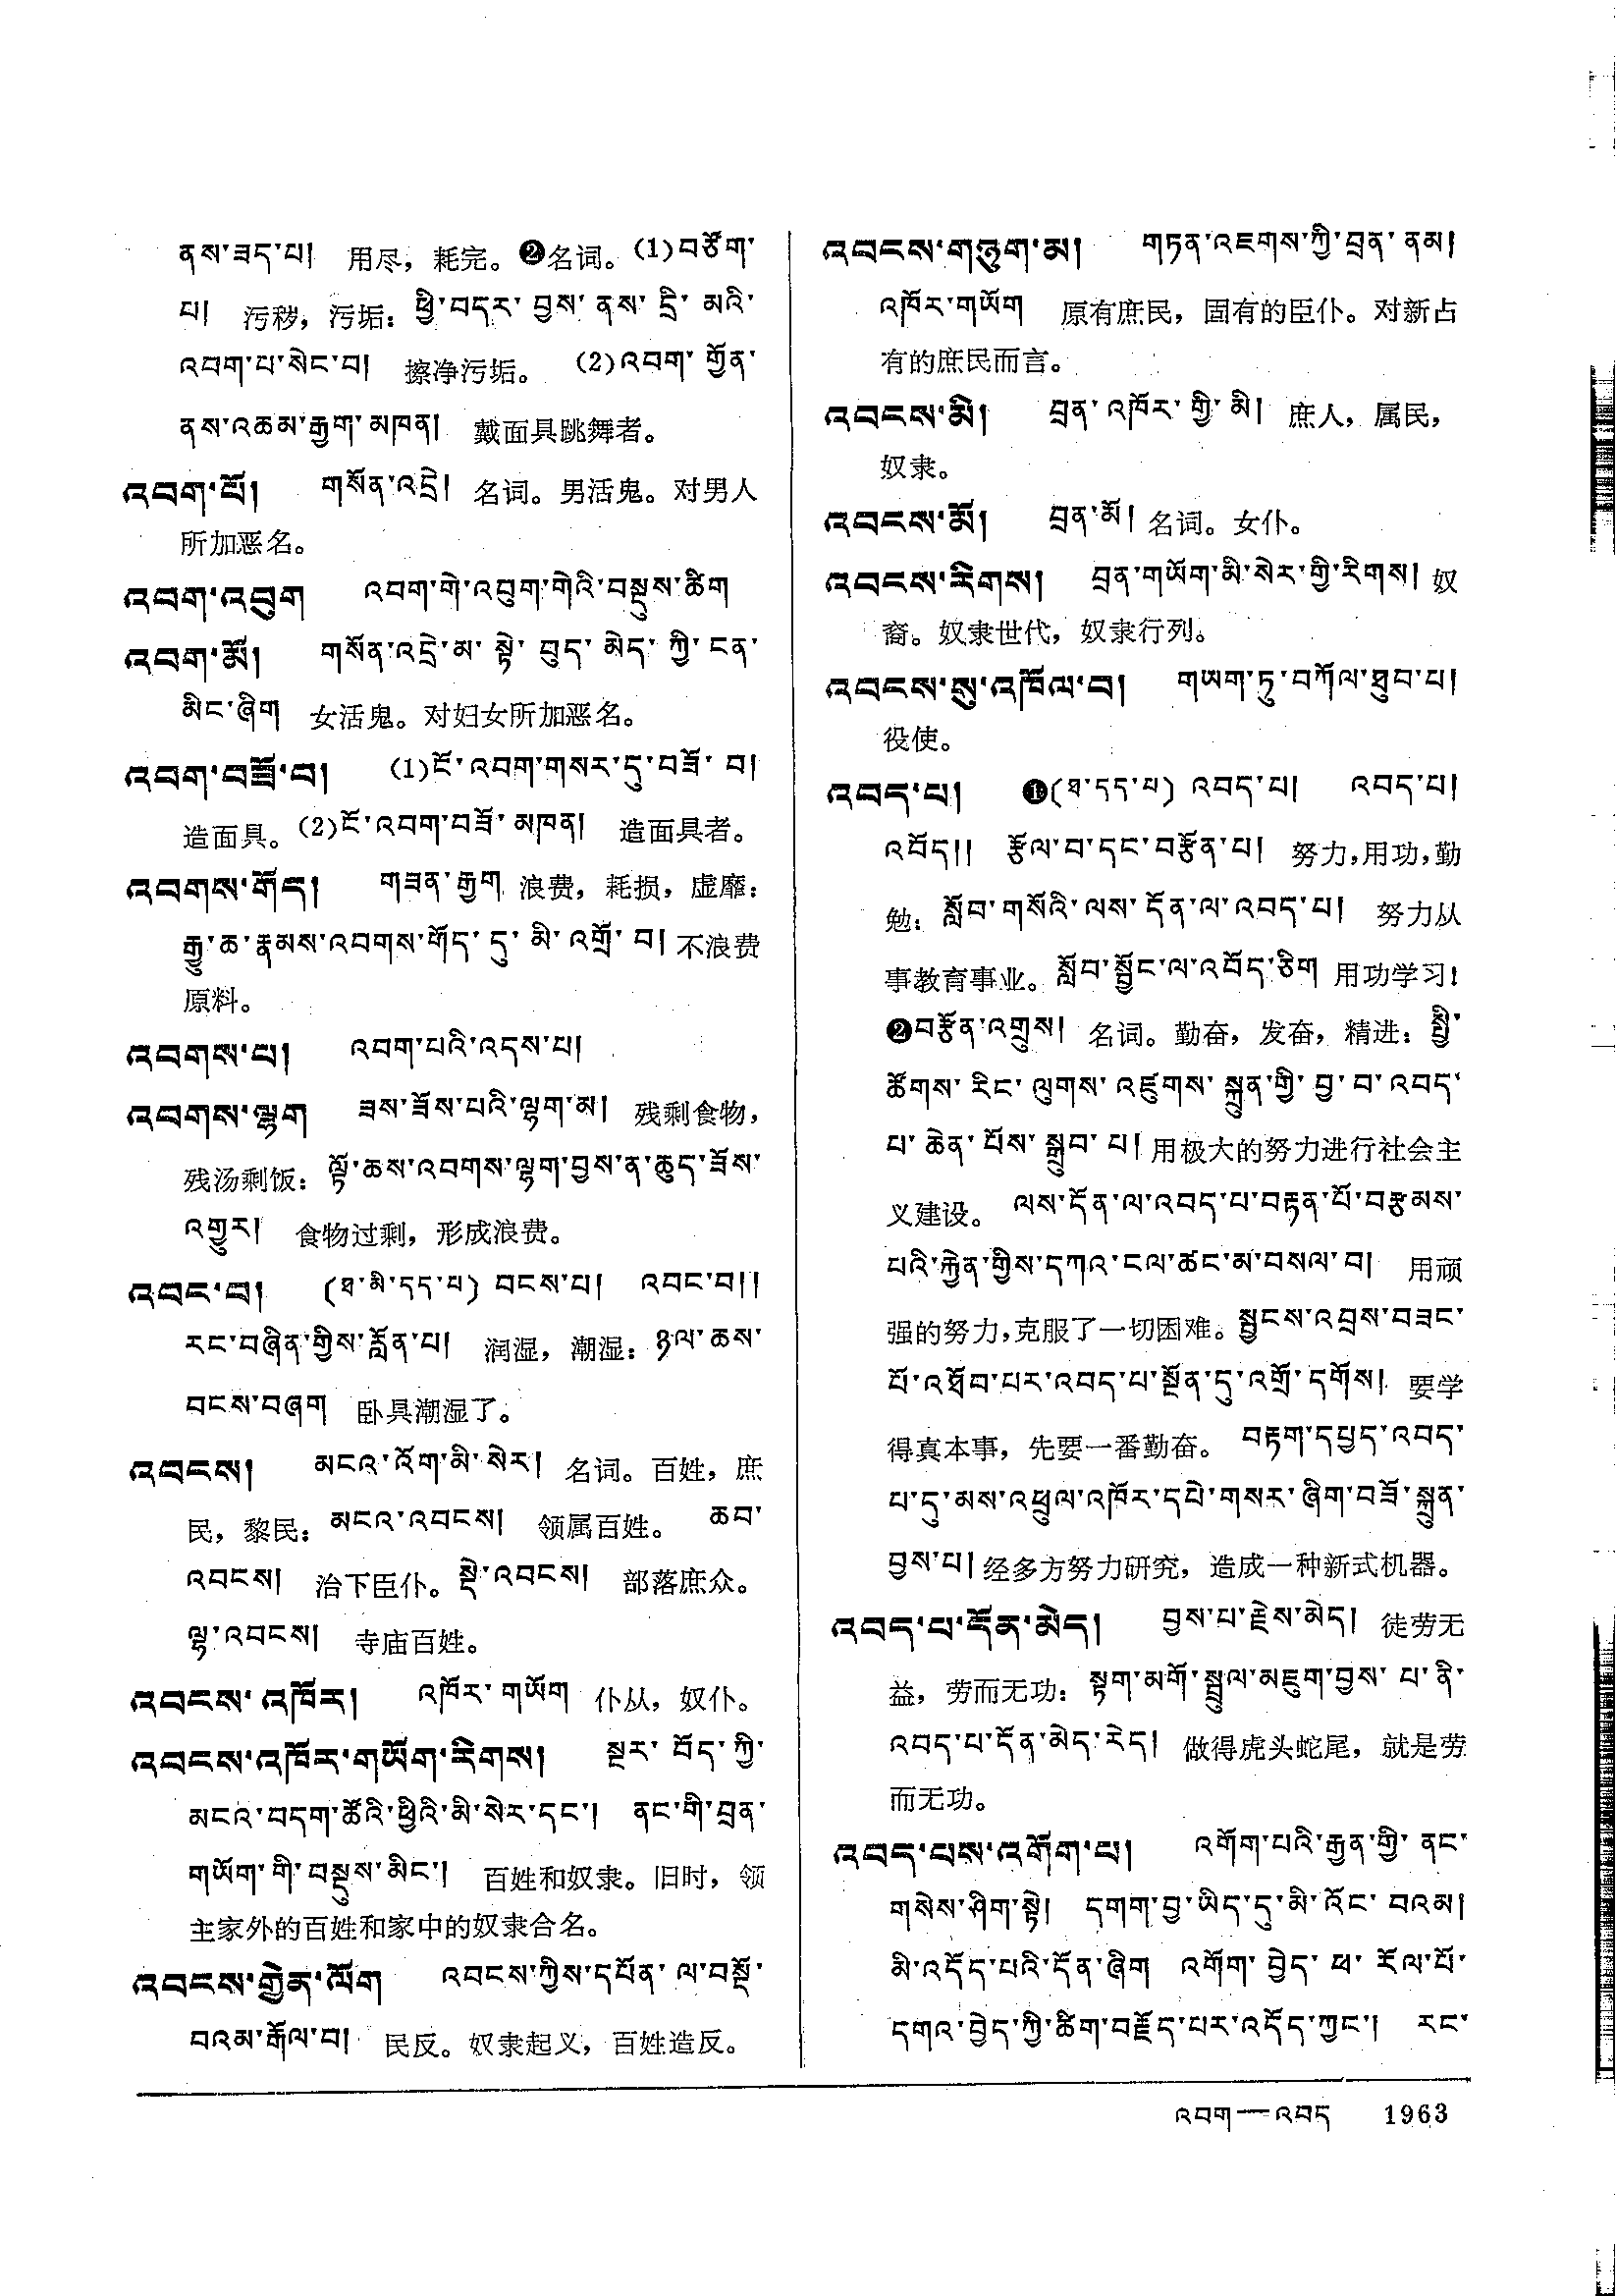 ནས་ཟད་པ། 用尽，耗完。❷名词。(1)བཙོག་
པ། 污秽，污垢：ཕྱི་བདར་བྱས་ནས་དྲི་མའི་
འབག་པ་སེང་བ། 擦净污垢。 (2)འབག་གྱོན་
ནས་འཆམ་རྒྱག་མཁན། 戴面具跳舞者。
འབག་པོ། གསོན་འདྲེ། 名词。男活鬼。对男人
所加恶名。
འབག་འབུག འབག་གེ་འབུག་གེའི་བསྡུས་ཚིག
འབག་མོ། གསོན་འདྲེ་མ་སྟེ་བུད་མེད་ཀྱི་ངན་
མིང་ཞིག 女活鬼。对妇女所加恶名。
འབག་བཟོ་བ། (1)ངོ་འབག་གསར་དུ་བཟོ་བ།
造面具。(2)ངོ་འབག་བཟོ་མཁན། 造面具者。
འབགས་གོད། གཟན་རྒྱག 浪费，耗损，虚靡：
རྒྱུ་ཆ་རྣམས་འབགས་གོད་དུ་མི་འགྲོ་བ། 不浪费
原料。
འབགས་པ། འབག་པའི་འདས་པ།
འབགས་ལྷག ཟས་ཟོས་པའི་ལྷག་མ། 残剩食物，
残汤剩饭：ལྟོ་ཆས་འབགས་ལྷག་བྱས་ན་ཆུད་ཟོས་
འགྱུར། 食物过剩，形成浪费。
འབང་བ། (ཐ་མི་དད་པ) བངས་པ། འབང་བ།།
རང་བཞིན་གྱིས་རློན་པ། 润湿，潮湿：ཉལ་ཆས་
བངས་བཞག 卧具潮湿了。
འབངས། མངའ་འོག་མི་སེར། 名词。百姓，庶
民，黎民：མངའ་འབངས། 领属百姓。 ཆབ་
འབངས། 治下臣仆。སྡེ་འབངས། 部落庶众。
ལྷ་འབངས། 寺庙百姓。
འབངས་འཁོར། འཁོར་གཡོག 仆从，奴仆。
འབངས་འཁོར་གཡོག་རིགས། སྔར་བོད་ཀྱི་
མངའ་བདག་ཚོའི་ཕྱིའི་མི་སེར་དང་། ནང་གི་བྲན་
གཡོག་གི་བསྡུས་མིང་། 百姓和奴隶。旧时，领
主家外的百姓和家中的奴隶合名。
འབངས་གྱེན་ལོག འབངས་ཀྱིས་དཔོན་ལ་བསྡོ་
བའམ་རྒོལ་བ། 民反。奴隶起义，百姓造反。
འབངས་གཉུག་མ། གཏན་འཇགས་ཀྱི་བྲན་ནམ།
འཁོར་གཡོག 原有庶民，固有的臣仆。对新占
有的庶民而言。
འབངས་མི། བྲན་འཁོར་གྱི་མི། 庶人，属民，
奴隶。
འབངས་མོ། བྲན་མོ། 名词。女仆。
འབངས་རིགས། བྲན་གཡོག་མི་སེར་གྱི་རིགས། 奴
裔。奴隶世代，奴隶行列。
འབངས་སུ་འཁོལ་བ། གཡག་ཏུ་བཀོལ་ཐུབ་པ།
役使。
འབད་པ། ❶(ཐ་དད་པ) འབད་པ། འབད་པ།
འབོད།། རྩོལ་བ་དང་བརྩོན་པ། 努力,用功,勤
勉：སློབ་གསོའི་ལས་དོན་ལ་འབད་པ། 努力从
事教育事业。སློབ་སྦྱོང་ལ་འབོད་ཅིག 用功学习!
❷བརྩོན་འགྲུས། 名词。勤奋，发奋，精进：སྤྱི་
ཚོགས་རིང་ལུགས་འཛུགས་སྐྲུན་གྱི་བྱ་བ་འབད་
པ་ཆེན་པོས་སྒྲུབ་པ། 用极大的努力进行社会主
义建设。 ལས་དོན་ལ་འབད་པ་བརྟན་པོ་བརྩམས་
པའི་རྐྱེན་གྱིས་དཀའ་ངལ་ཚང་མ་བསལ་བ། 用顽
强的努力,克服了一切困难。སྦྱངས་འབྲས་བཟང་
པོ་འཐོབ་པར་འབད་པ་སྔོན་དུ་འགྲོ་དགོས། 要学
得真本事，先要一番勤奋。 བརྟག་དཔྱད་འབད་
པ་དུ་མས་འཕྲུལ་འཁོར་དཔེ་གསར་ཞིག་བཟོ་སྐྲུན་
བྱས་པ། 经多方努力研究，造成一种新式机器。
འབད་པ་དོན་མེད། བྱས་པ་རྗེས་མེད། 徒劳无
益，劳而无功：སྟག་མགོ་སྦྲུལ་མཇུག་བྱས་པ་ནི་
འབད་པ་དོན་མེད་རེད། 做得虎头蛇尾，就是劳
而无功。
འབད་པས་འགོག་པ། འགོག་པའི་རྒྱན་གྱི་ནང་
གསེས་ཤིག་སྟེ། དགག་བྱ་ཡིད་དུ་མི་འོང་བའམ།
མི་འདོད་པའི་དོན་ཞིག འགོག་བྱེད་ཕ་རོལ་པོ་
དགའ་བྱེད་ཀྱི་ཚིག་བརྗོད་པར་འདོད་ཀྱང་། རང་
འབག—འབད 1963